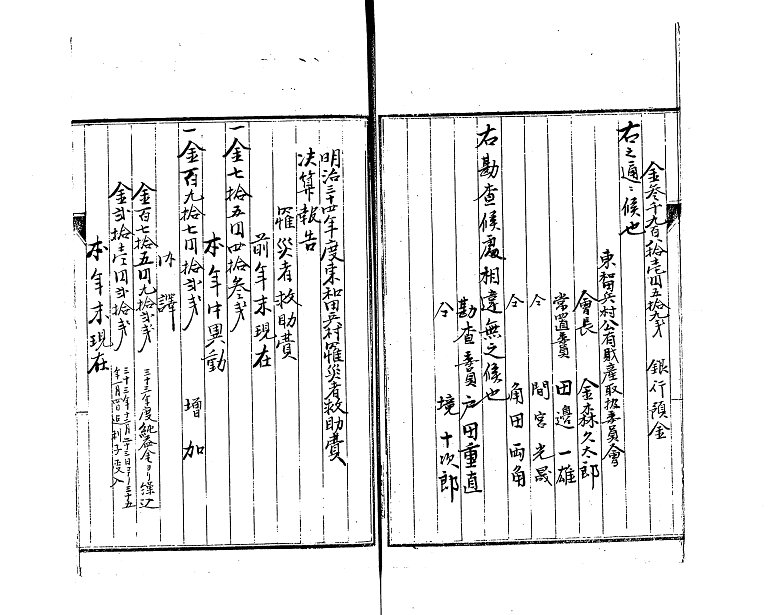 金参千九百拾壱円五拾九銭 銀行預金
右之通ニ候也
東和田兵村公有財産取扱委員会
会長 金森久太郎
常置委員 田邉一雄
仝 間宮光晟
仝 角田両角
右勘査候處相違無之候也
勘査委員 戸田重直
仝 境十次郎
明治三十四年度東和田兵村罹災者救助費
決算報告
罹災者救助費
前年末現在
一金七拾五円四拾参銭
本年中異動
一金百九拾七円拾弐銭 増加
内譯
金百七拾五円九拾弐銭 三十三年度純益金ヨリ繰込
金弐拾壱円弐拾銭 三十三年十二月二十三日ヨリ三十五
年一月 日迄利子受入
本年末現在